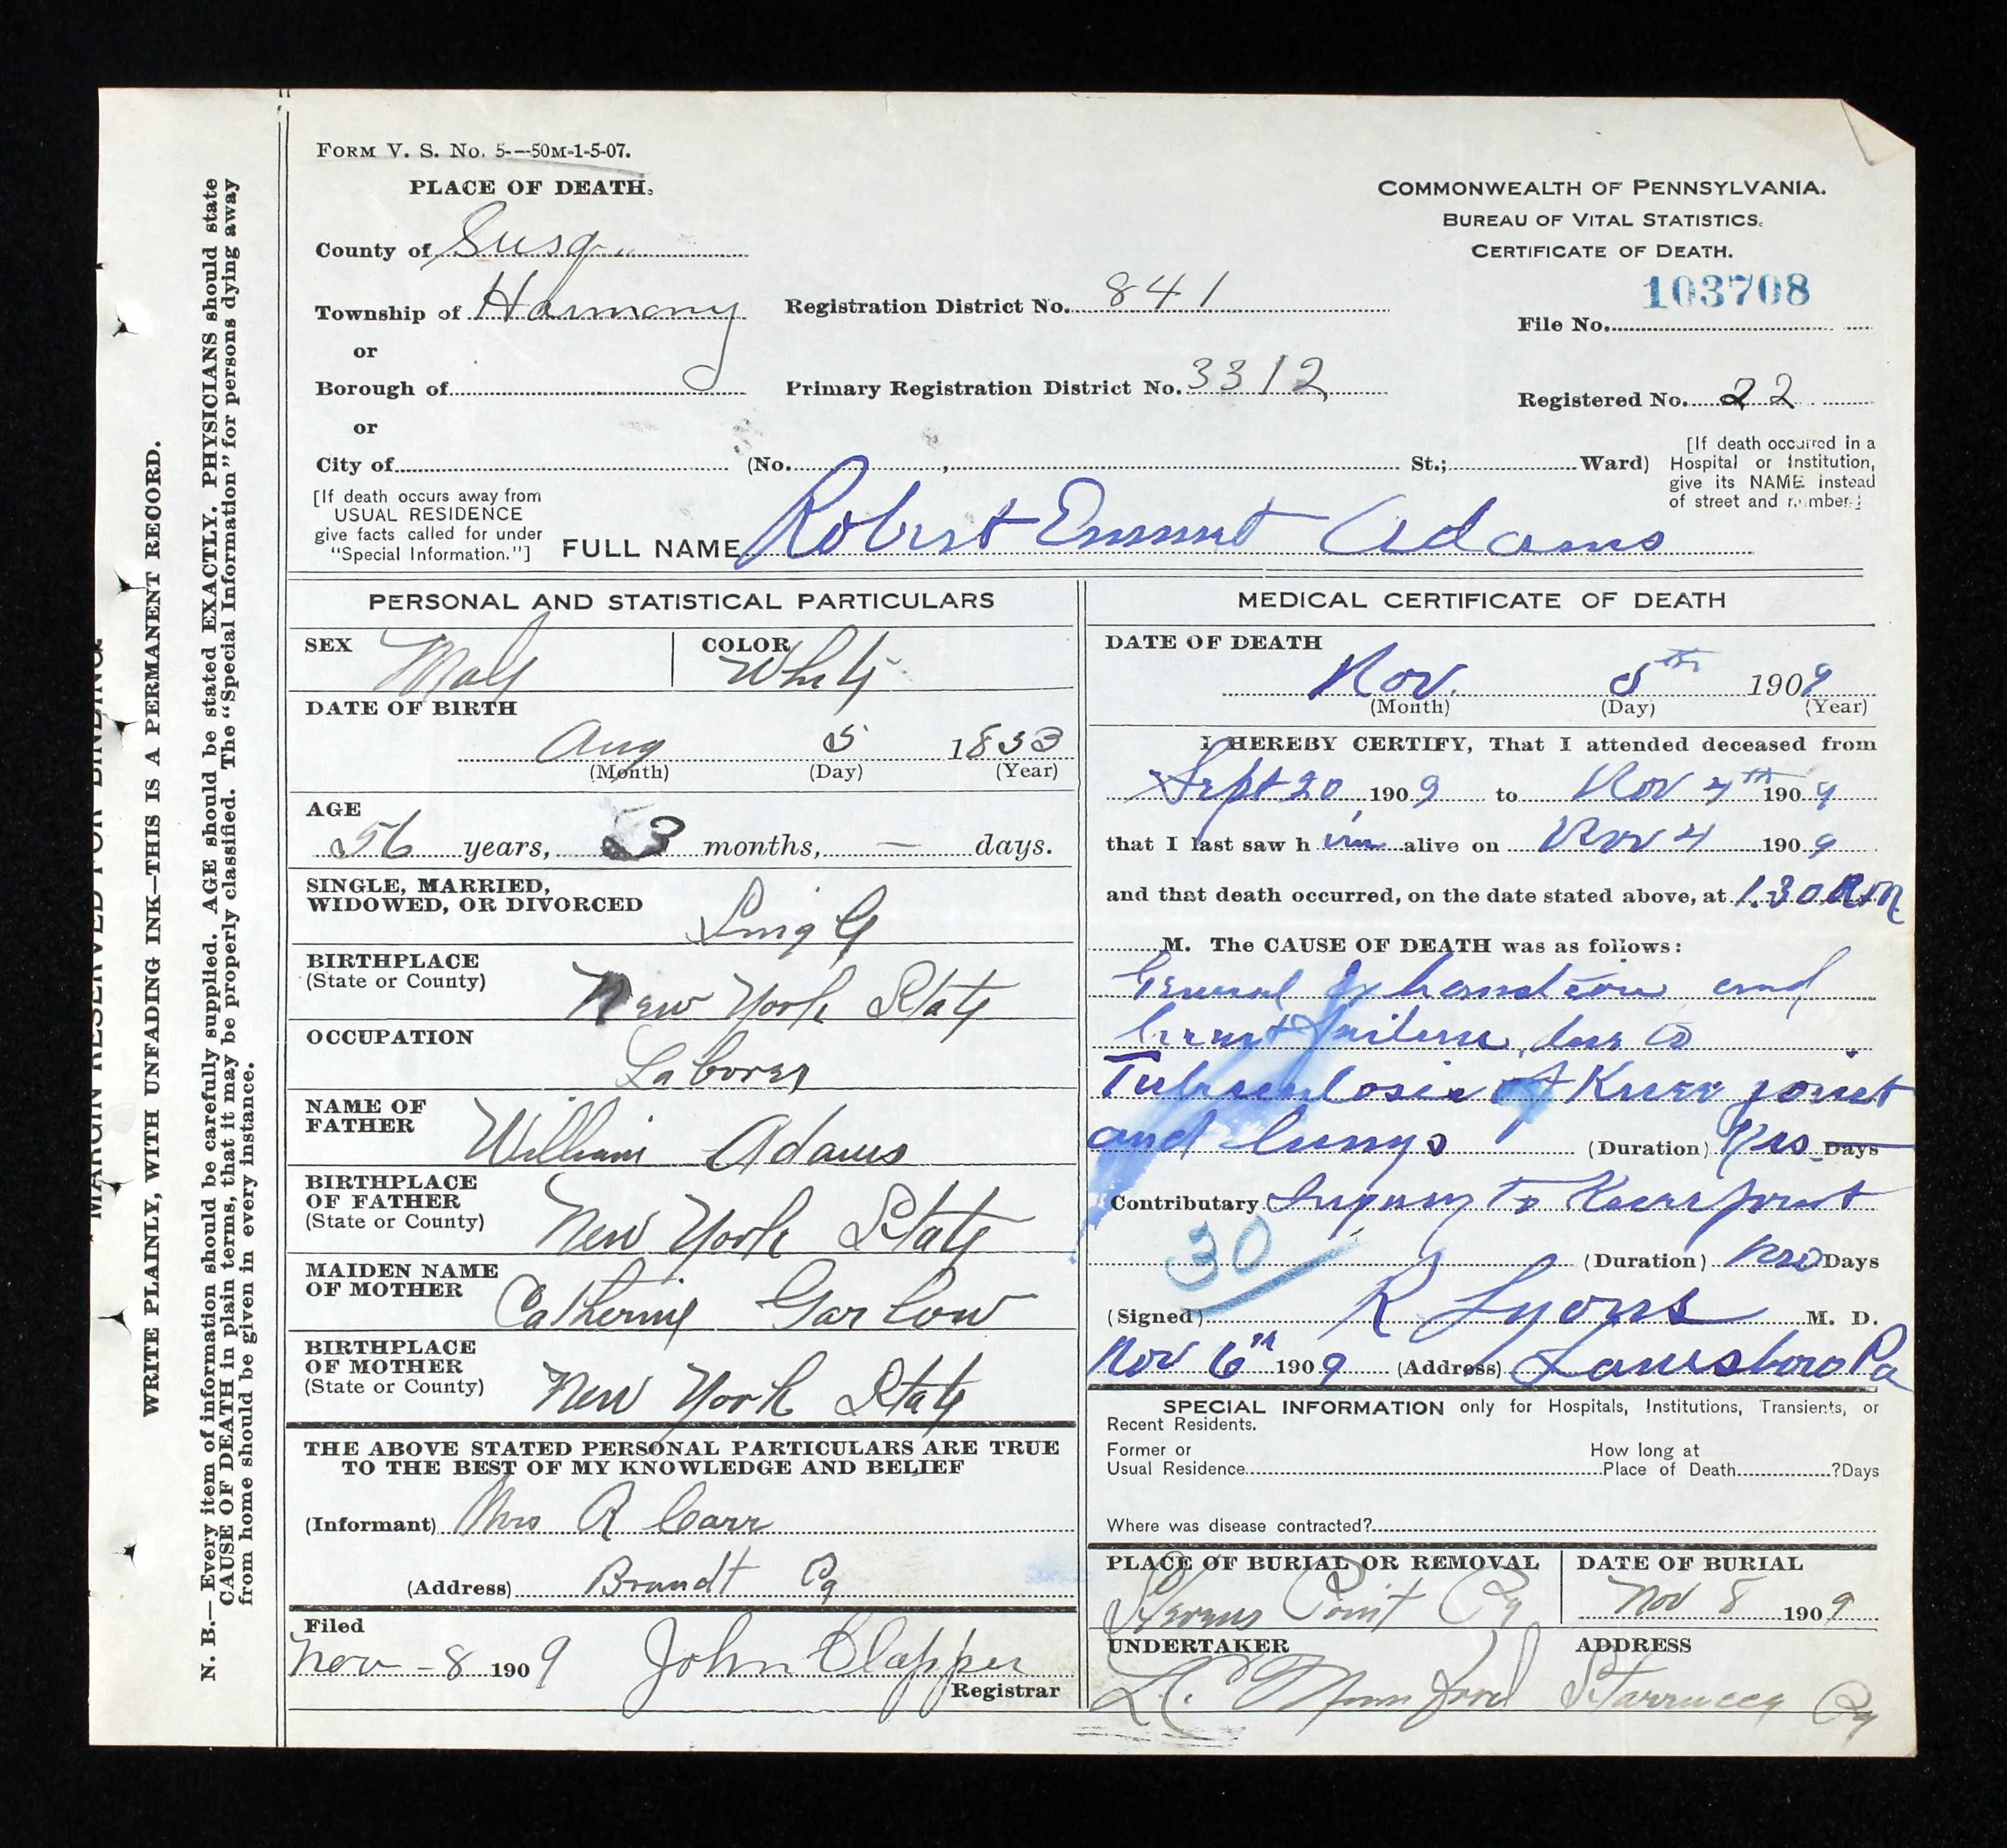 FORM V. S. No. 5---50M-1-5-07.
PLACE OF DEATH.
County of Susq.
Township of Harmony
or
Borough of
or
City of (No. , St.; Ward)
Registration District No. 841
Primary Registration District No. 3312
COMMONWEALTH OF PENNSYLVANIA.
BUREAU OF VITAL STATISTICS.
CERTIFICATE OF DEATH.
103708
File No.
Registered No. 22
[If death occurred in a
Hospital or Institution,
give its NAME instead
of street and number.]
[If death occurs away from
USUAL RESIDENCE
give facts called for under
"Special Information."]
FULL NAME Robert Emmut Adams
PERSONAL AND STATISTICAL PARTICULARS
SEX Male
COLOR White
DATE OF BIRTH
Aug 5 1853
(Month) (Day) (Year)
AGE
56 years, 3 months, — days.
SINGLE, MARRIED,
WIDOWED, OR DIVORCED Single
BIRTHPLACE
(State or County) New York State
OCCUPATION
Laborer
NAME OF
FATHER William Adams
BIRTHPLACE
OF FATHER
(State or County) New York State
MAIDEN NAME
OF MOTHER Catherine Garlow
BIRTHPLACE
OF MOTHER
(State or County) New York State
THE ABOVE STATED PERSONAL PARTICULARS ARE TRUE
TO THE BEST OF MY KNOWLEDGE AND BELIEF
(Informant) Mrs R Carr
(Address) Brandt Pa
Filed
Nov - 8 1909 John Clapper
Registrar
MEDICAL CERTIFICATE OF DEATH
DATE OF DEATH
Nov. 5th 1909
(Month) (Day) (Year)
I HEREBY CERTIFY, That I attended deceased from
Sept 20, 1909 to Nov 4th 1909
that I last saw him alive on Nov 4 1909
and that death occurred, on the date stated above, at 1.30 AM
M. The CAUSE OF DEATH was as follows:
General Exhaustion and
heart failure, due to
Tuberculosis of Knee joint
and lungs (Duration) Yrs Days
Contributary Injury to Knee joint
(Duration) Days
30
(Signed) R Lyons M. D.
Nov 6th 1909 (Address) Lanesboro Pa
SPECIAL INFORMATION only for Hospitals, Institutions, Transients, or
Recent Residents.
Former or
Usual Residence
How long at
Place of Death ?Days
Where was disease contracted?
PLACE OF BURIAL OR REMOVAL
Stevens Point Pa
DATE OF BURIAL
Nov 8 1909
UNDERTAKER
L.C. Mumford
ADDRESS
Starrucca Pa
MARGIN RESERVED FOR BINDING
WRITE PLAINLY, WITH UNFADING INK—THIS IS A PERMANENT RECORD.
N. B.—Every item of information should be carefully supplied. AGE should be stated EXACTLY. PHYSICIANS should state
CAUSE OF DEATH in plain terms, that it may be properly classified. The "Special Information" for persons dying away
from home should be given in every instance.